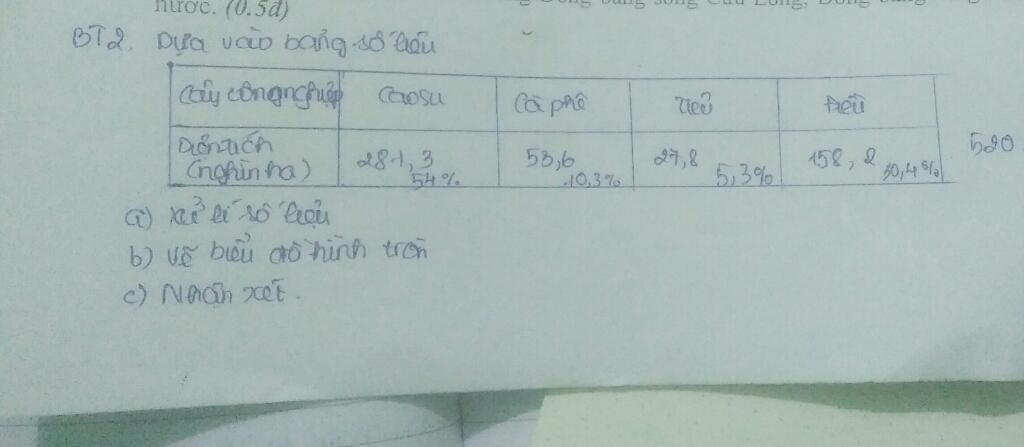 nước. (0.5đ) Đồng bằng sông Cửu Long, Đồng bằng
BT2. Dựa vào bảng số liệu
Cây công nghiệp Cao su Cà phê Tiêu Điều
Diện tích (nghìn ha) 281,3 53,6 27,8 158,2 520
54% 10,3% 5,3% 30,4%
a) xử lí số liệu
b) vẽ biểu đồ hình tròn
c) Nhận xét.